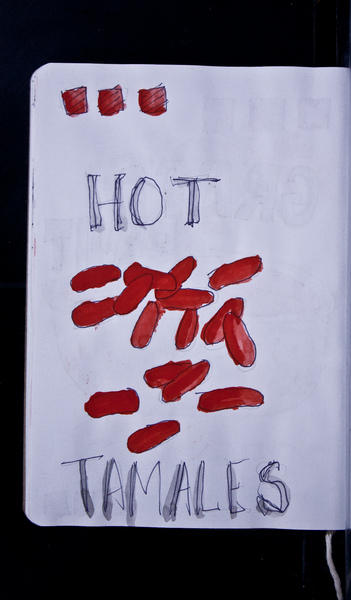 HOT
TAMALES